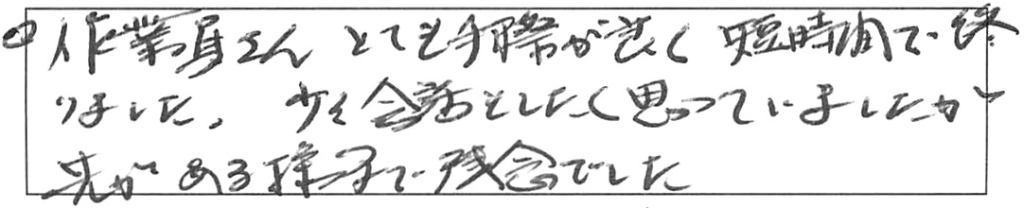 作業員さん とても手際が良く 短時間で終
りました。 少々会話をしたく思っていましたが
先がある様子で残念でした